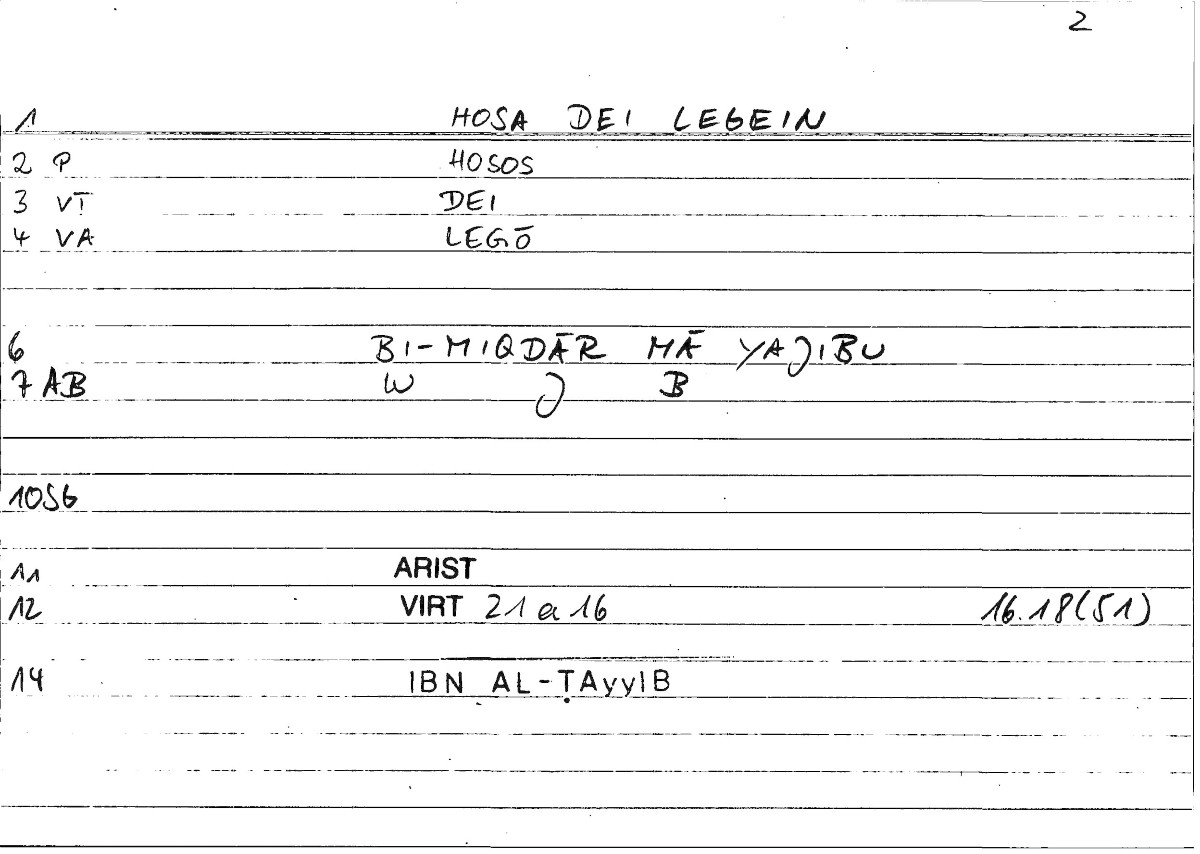 2
1 HOSA DEI LEGEIN
2 P HOSOS
3 VT DEI
4 VA LEGŌ
6 BI-MIQDĀR MĀ YAJIBU
7 AB W J B
10SG
11 ARIST
12 VIRT 21 a 16 16.18(51)
14 IBN AL-ṬAyyIB